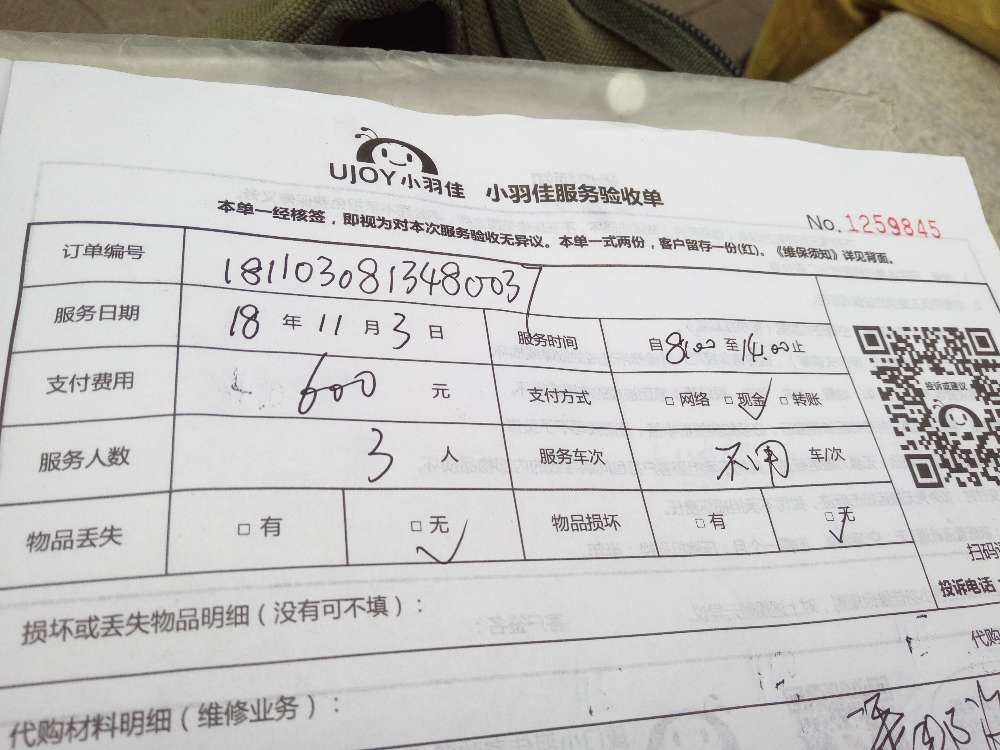 UJOY小羽佳 小羽佳服务验收单
No. 1259845
本单一经核签，即视为对本次服务验收无异议。本单一式两份，客户留存一份(红)。《维保须知》详见背面。
订单编号 181103081348003
服务日期 18 年 11 月 3 日 服务时间 自 8:00 至 14:00 止
支付费用 600 元 支付方式 □ 网络 □ 现金 □ 转账
投诉或建议
服务人数 3 人 服务车次 不用 车/次
物品丢失 □ 有 □ 无 物品损坏 □ 有 □ 无
扫码
投诉电话
损坏或丢失物品明细（没有可不填）：
代购
代购材料明细（维修业务）：